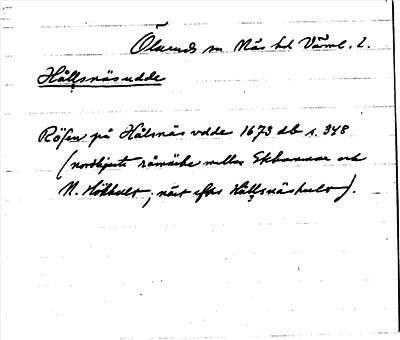 Ölserud sn Näs hd Värml. l.
Hållsnäsudde
Rösen på Hålsnäs udde 1673 db s. 348
(nordligaste råmärke mellan Ekhammar och
N. Hökhult; närt efter Hållsnäshult).